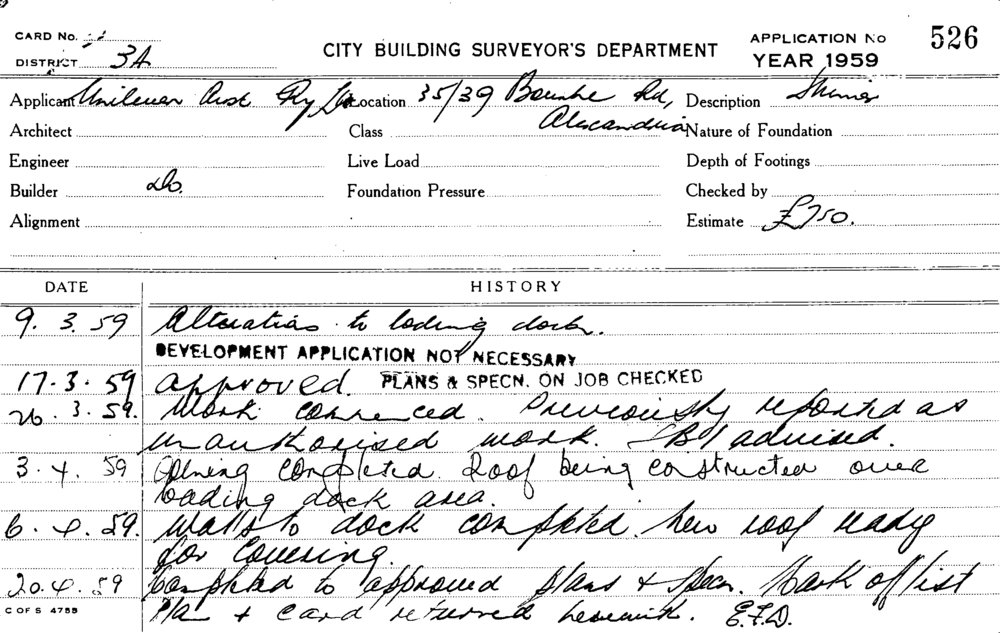 CARD No.
CITY BUILDING SURVEYOR'S DEPARTMENT
APPLICATION No 526
DISTRICT 3A
YEAR 1959
Applicant Unilever Aust. Pty Location 35/39 Bourke Rd, Description
Alexandria
Architect Class Nature of Foundation
Engineer Live Load Depth of Footings
Builder Do. Foundation Pressure Checked by
Alignment Estimate £750.
DATE HISTORY
9. 3. 59 Alterations to loding dock.
DEVELOPMENT APPLICATION NOT NECESSARY
17. 3. 59 approved. PLANS & SPECN. ON JOB CHECKED
26. 3. 59. Work commenced. Previously reported as
unauthorised work. advised.
3. 4. 59 Opening completed. Roof being constructed over
loading dock area.
6. 4. 59. Walls to dock completed. new roof ready
for covering.
20.4.59 Completed to approved plans & specn. Mark off list
Plan & card returned herewith. E.F.D.
C OF S 4755